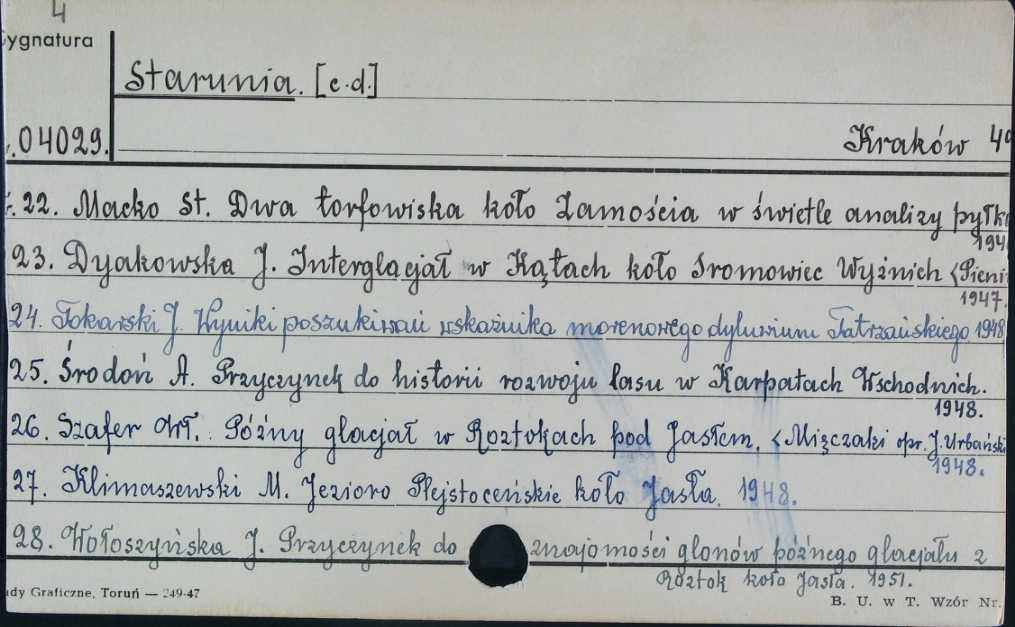 4
Sygnatura
Starunia. [c.d.]
.04029.
Kraków 49
22. Macko St. Dwa torfowiska koło Zamościa w świetle analizy pyłk
194
23. Dyakowska J. Interglacjał w Kątach koło Sromowiec Wyżnich (Pieni
1947.
24. Tokarski J. Wyniki poszukiwań wskaźnika morenowego dyluwium Tatrzańskiego 1948
25. Środoń A. Przyczynek do historii rozwoju lasu w Karpatach Wschodnich.
1948.
26. Szafer Wł. Późny glacjał w Roztokach pod Jasłem. (Mięczaki opr. J. Urbański
1948.
27. Klimaszewski M. Jezioro Plejstoceńskie koło Jasła. 1948.
28. Wołoszyńska J. Przyczynek do znajomości glonów późnego glacjału z
Roztok koło Jasła. 1951.
ady Graficzne, Toruń — 249-47
B. U. w T. Wzór Nr.